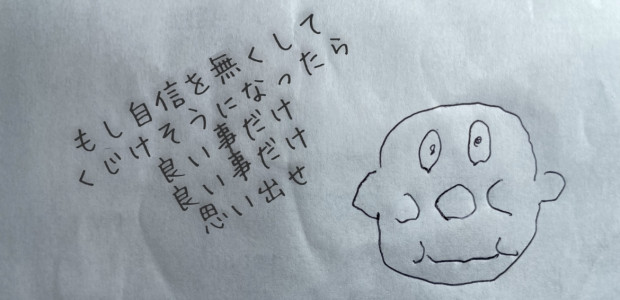 もし自信を無くして
くじけそうになったら
良い事だけ
良い事だけ
思い出せ